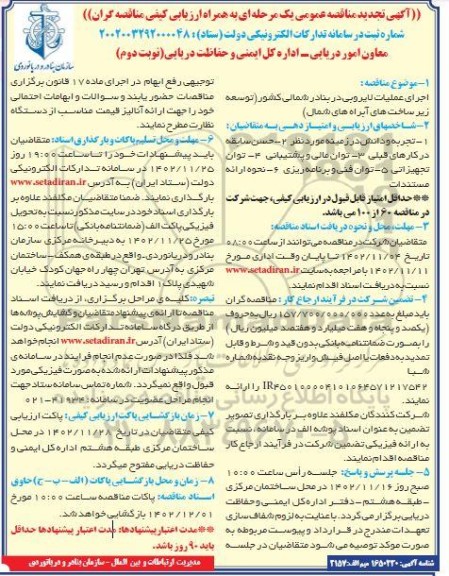 ((آگهی تجدید مناقصه عمومی یک مرحله‌ای به همراه ارزیابی کیفی مناقصه گران))
شماره ثبت در سامانه تدارکات الکترونیکی دولت (ستاد): ۲۰۰۲۰۰۳۲۹۲۰۰۰۰۴۸
معاون امور دریایی_ اداره کل ایمنی و حفاظت دریایی (نوبت دوم)
سازمان بنادر و دریانوردی
۱- موضوع مناقصه :
اجرای عملیات لایروبی در بنادر شمالی کشور (توسعه
زیر ساخت های آبراه های شمال)
۲- شاخصهای ارزیابی و امتیاز دهی به متقاضیان:
۱- تجربه و دانش در زمینه مورد نظر ۲- حسن سابقه
در کارهای قبلی ۳- توان مالی و پشتیبانی ۴- توان
تجهیزاتی ۵- توان فنی و برنامه ریزی ۶- نحوه ارائه
مستندات
**حداقل امتیاز قابل قبول در ارزیابی کیفی، جهت شرکت
در مناقصه ۶۰ از ۱۰۰ می باشد.
۳- مهلت، محل و نحوه دریافت اسناد مناقصه:
متقاضیان شرکت در مناقصه می توانند از ساعت ۰۸:۰۰
تاریخ ۱۴۰۲/۱۱/۰۴ تا پایان وقت اداری مورخ
۱۴۰۲/۱۱/۱۱ با مراجعه به سایت www.setadiran.ir
نسبت به دریافت اسناد اقدام نمایند.
۴- تضمین شرکت در فرآیند ارجاع کار: مناقصه گران
باید مبلغ به عدد ۱۵۷/۷۰۰/۰۰۰/۰۰۰ ریال به حروف
(یکصد و پنجاه و هفت میلیارد و هفتصد میلیون ریال)
را بصورت ضمانتنامه بانکی بدون قید و شرط و قابل
تمدید به دفعات یا اصل فیش واریز وجه نقد به شماره
شبا
را ارائه
نمایند.
شرکت کنندگان مکلفند علاوه بر بارگذاری تصویر
تضمین به عنوان اسناد پوشه الف در سامانه، نسبت
به ارائه فیزیکی تضمین شرکت در فرآیند ارجاع کار
مناقصه اقدام نمایند.
۵- جلسه پرسش و پاسخ: جلسه رأس ساعت ۱۰:۰۰
صبح روز ۱۴۰۲/۱۱/۱۶ در محل ساختمان مرکزی
-طبقه هشتم- دفتر اداره کل ایمنی و حفاظت
دریایی برگزار می گردد. با عنایت به لزوم شفاف سازی
تعهدات مندرج در قرارداد و پیوست مربوطه به
صورت موکد توصیه می شود متقاضیان در جلسه
توجیهی رفع ابهام در اجرای ماده ۱۷ قانون برگزاری
مناقصات حضور یابند و سوالات و ابهامات احتمالی
خود را جهت ارائه آنالیز قیمت مناسب از دستگاه
نظارت مطرح نمایند.
۶- مهلت و محل تسلیم پاکات و بارگذاری اسناد: متقاضیان
باید پیشنهادات خود را تا ساعت ۱۹:۰۰ روز
۱۴۰۲/۱۱/۲۵ در سامانه تدارکات الکترونیکی
دولت (ستاد ایران) به آدرس www.setadiran.ir
بارگذاری نمایند. ضمنا متقاضیان مکلفند علاوه بر
بارگذاری اسناد خود در سایت مذکور نسبت به تحویل
فیزیکی پاکت الف (ضمانتنامه بانکی) تا ساعت ۱۵:۰۰
مورخ ۱۴۰۲/۱۱/۲۵ به دبیرخانه مرکزی سازمان
بنادر و دریانوردی، واقع در طبقه ی همکف- ساختمان
مرکزی به آدرس تهران چهار راه جهان کودک خیابان
شهیدی پلاک ۱ اقدام و رسید دریافت نمایند.
تبصره: کلیه ی مراحل برگزاری، از دریافت اسناد
مناقصه تا ارائه ی پیشنهاد متقاضیان و گشایش پوشه ها
از طریق درگاه سامانه تدارکات الکترونیکی دولت
(ستاد ایران) آدرس www.setadiran.ir انجام خواهد
شد. لذا در صورت عدم انجام فرایند در سامانه ی
مذکور پیشنهادات ارائه شده به صورت فیزیکی مورد
قبول واقع نمیگردد. شماره تماس سامانه ستاد جهت
انجام مراحل عضویت در سامانه: ۴۱۹۳۴-۰۲۱
۷- زمان بازگشایی پاکت ارزیابی کیفی: پاکت ارزیابی
کیفی متقاضیان در تاریخ ۱۴۰۲/۱۱/۲۸ در محل
ساختمان مرکزی طبقه هشتم اداره کل ایمنی و
حفاظت دریایی مفتوح میگردد.
۸- زمان و محل بازگشایی پاکات (الف-ب-ج) حاوی
اسناد مناقصه: پاکات مناقصه ساعت ۱۰:۰۰ مورخ
۱۴۰۲/۱۲/۰۱ بازگشایی خواهد شد.
**مدت اعتبار پیشنهادها: مدت اعتبار پیشنهادها حداقل
باید ۹۰ روز باشد.
مدیریت ارتباطات و بین الملل - سازمان بنادر و دریانوردی
شناسه آگهی: ۱۶۵۰۲۳۰ میم الف: ۴۱۵۴